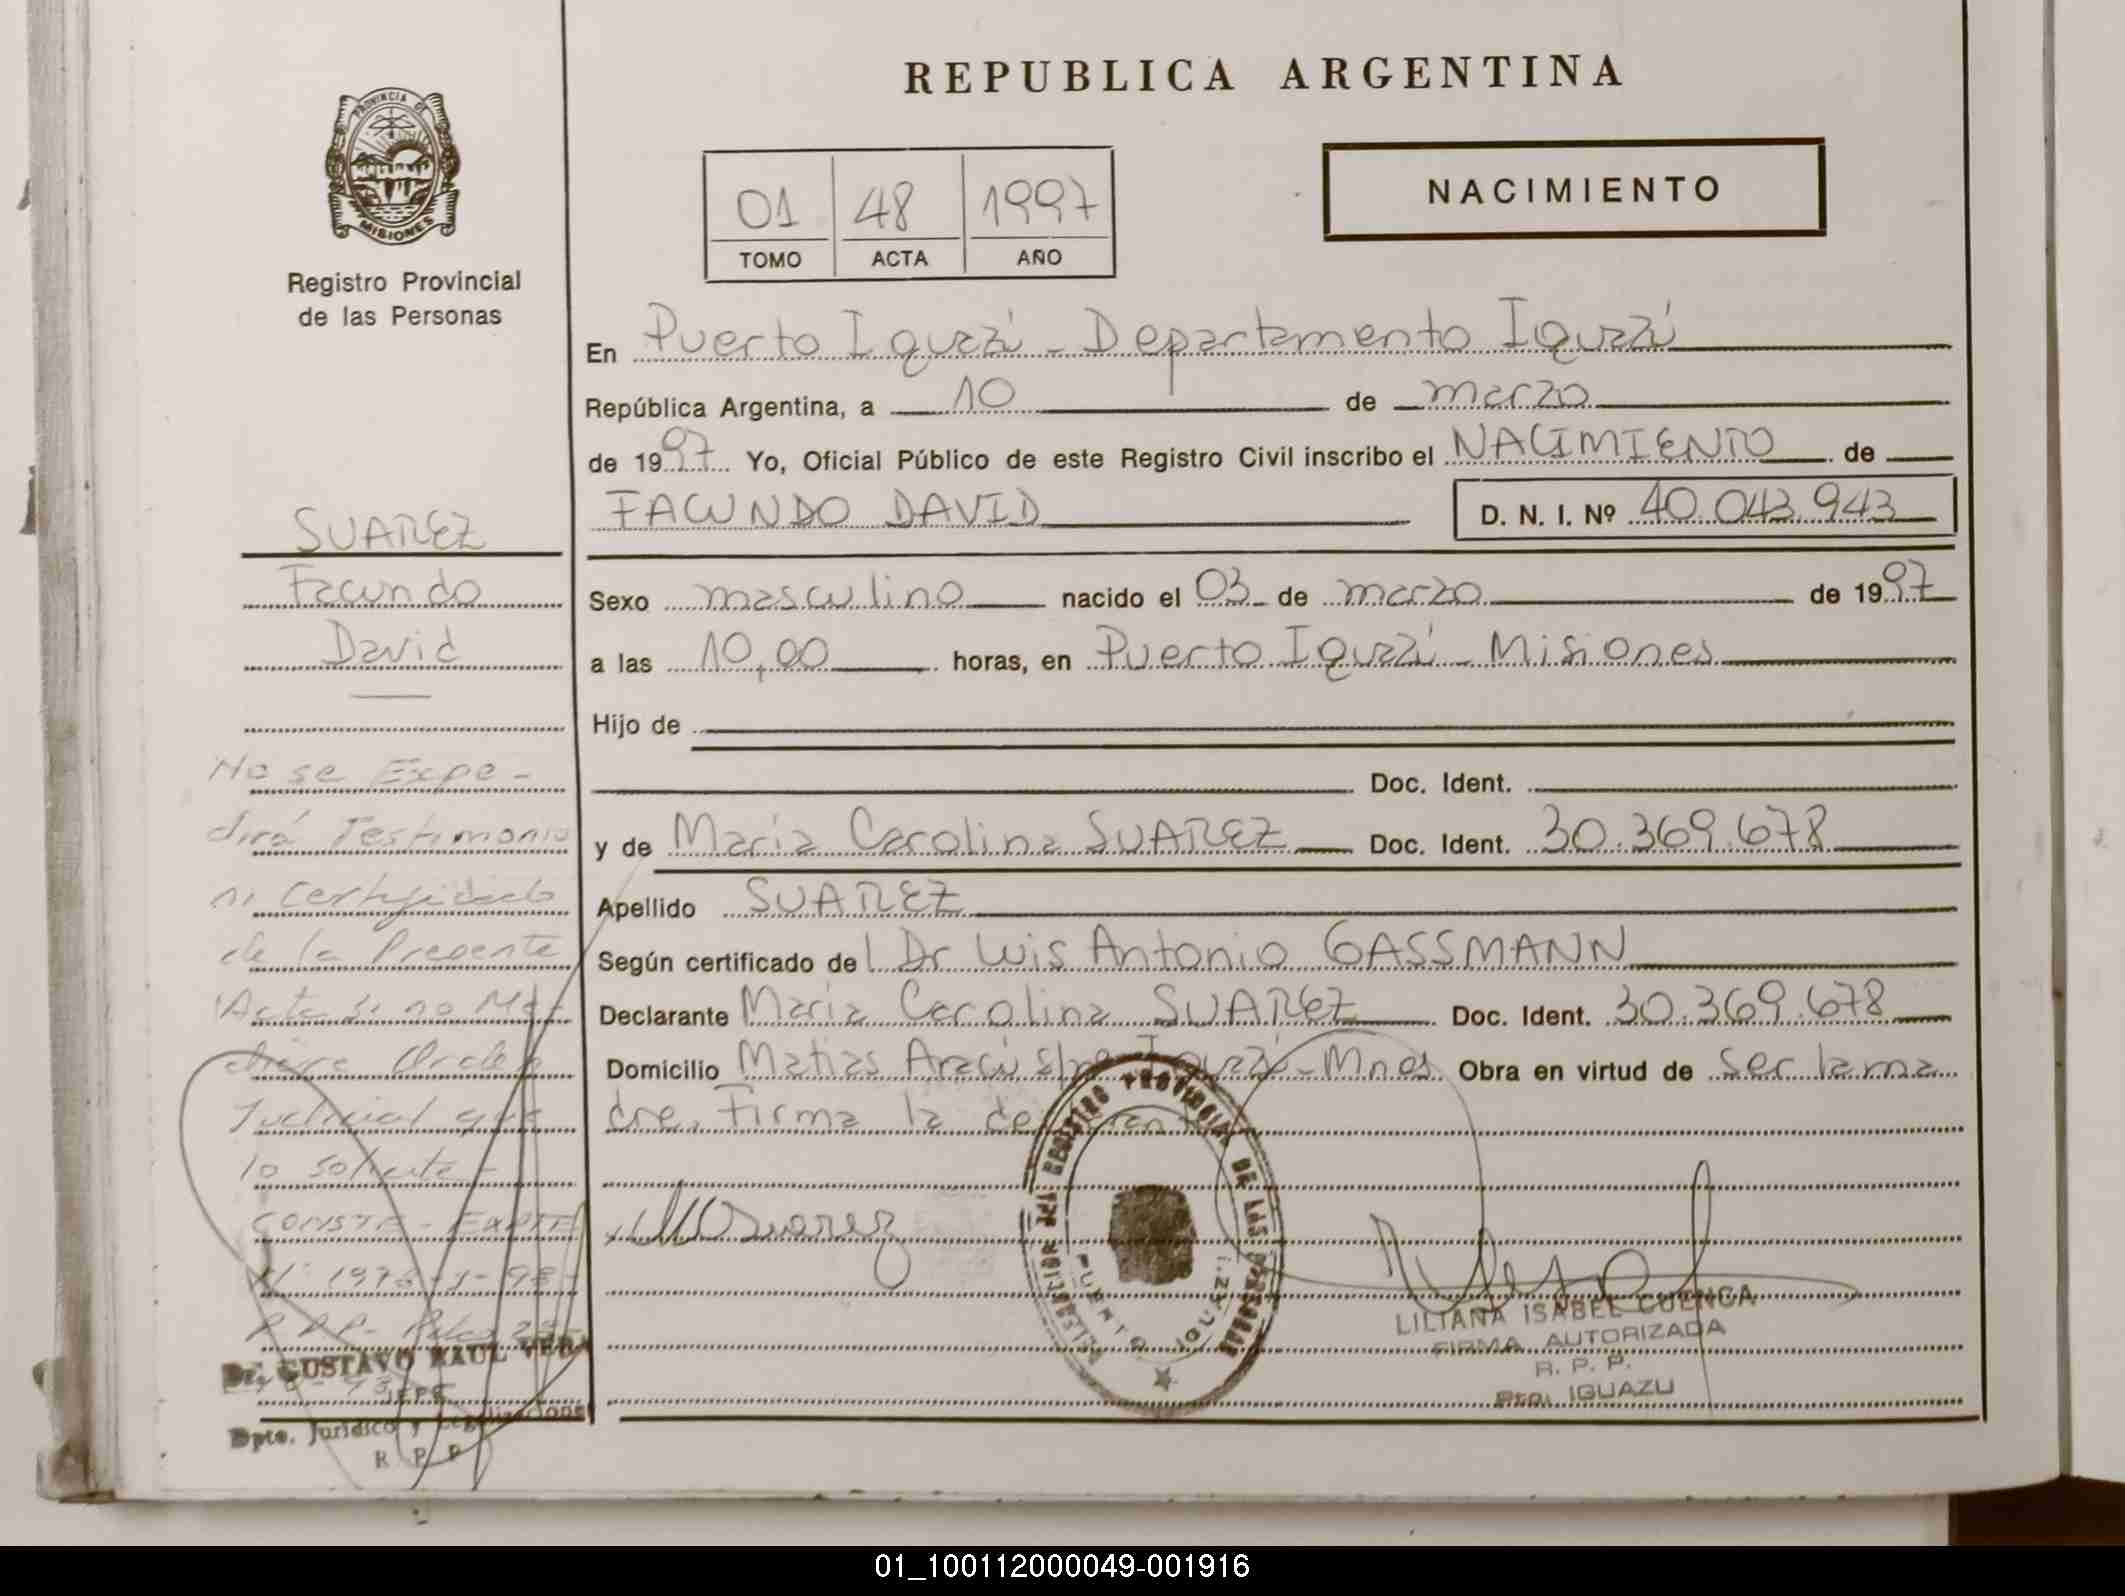 REPUBLICA ARGENTINA
PROVINCIA DE
MISIONES
Registro Provincial
de las Personas
01 48 1997
TOMO ACTA AÑO
NACIMIENTO
En Puerto Iguazú - Departamento Iguazú
República Argentina, a 10 de marzo
de 1997 Yo, Oficial Público de este Registro Civil inscribo el NACIMIENTO de
FACUNDO DAVID D. N. I. Nº 40.043.943
Sexo masculino nacido el 03 de marzo de 1997
a las 10,00 horas, en Puerto Iguazú - Misiones
Hijo de
Doc. Ident.
y de Maria Carolina SUAREZ Doc. Ident. 30.369.678
Apellido SUAREZ
Según certificado del Dr Luis Antonio GASSMANN
Declarante Maria Carolina SUAREZ Doc. Ident. 30.369.678
Domicilio Matias Iguazú - Mnes Obra en virtud de ser la ma
dre. Firma la
SUAREZ
Facundo
David
No se Expe-
dirá Testimonio
ni Certificado
de la Presente
Acta si no Me-
diare Orden
Judicial que
lo solicite -
CONSTE - EXPTE
Dr. GUSTAVO RAUL VERA
JEFE
Dpto. Jurídico y Legalizaciones
R P P
MSuarez
REGISTRO PROVINCIAL DE LAS PERSONAS
PUERTO IGUAZU
LILIANA ISABEL CUENCA
FIRMA AUTORIZADA
R. P. P.
Pto. IGUAZU
01_100112000049-001916